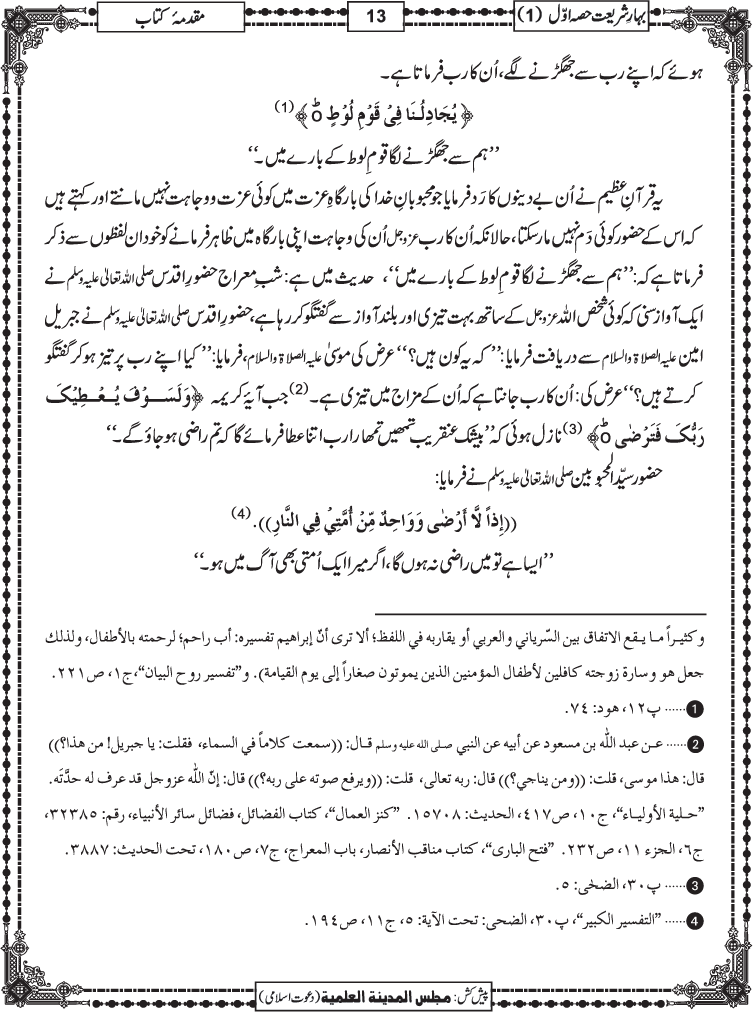 بہارِ شریعت حصہ اوّل (1)
13
مقدمۂ کتاب
ہوئے کہ اپنے رب سے جھگڑنے لگے، اُن کا رب فرماتا ہے۔
﴿ یُجَادِلُنَا فِیْ قَوْمِ لُوْطٍ ؕ﴾ (1)
’’ہم سے جھگڑنے لگا قومِ لوط کے بارے میں ۔‘‘
یہ قرآنِ عظیم نے اُن بے دینوں کا رَد فرمایا جو محبوبانِ خدا کی بارگاہِ عزت میں کوئی عزت و وجاہت نہیں مانتے اور کہتے ہیں
کہ اس کے حضور کوئی دَم نہیں مار سکتا، حالانکہ اُن کا رب عزوجل اُن کی وجاہت اپنی بارگاہ میں ظاہر فرمانے کو خود ان لفظوں سے ذکر
فرماتا ہے کہ: ’’ہم سے جھگڑنے لگا قومِ لوط کے بارے میں‘‘، حدیث میں ہے: شبِ معراج حضورِ اقدس صلی اللہ تعالیٰ علیہ وسلم نے
ایک آواز سنی کہ کوئی شخص اللہ عزوجل کے ساتھ بہت تیزی اور بلند آواز سے گفتگو کر رہا ہے، حضورِ اقدس صلی اللہ تعالیٰ علیہ وسلم نے جبریل
امین علیہ الصلاۃ والسلام سے دریافت فرمایا: ’’کہ یہ کون ہیں؟‘‘ عرض کی موسیٰ علیہ الصلاۃ والسلام، فرمایا: ’’کیا اپنے رب پر تیز ہو کر گفتگو
کرتے ہیں؟‘‘ عرض کی: اُن کا رب جانتا ہے کہ اُن کے مزاج میں تیزی ہے۔ (2) جب آیۂ کریمہ ﴿وَلَسَوْفَ یُعْطِیْکَ
رَبُّکَ فَتَرْضٰی ؕ﴾ (3) نازل ہوئی کہ ’’بیشک عنقریب تمھیں تمھارا رب اتنا عطا فرمائے گا کہ تم راضی ہو جاؤ گے۔‘‘
حضور سیّد المحبوبین صلی اللہ تعالیٰ علیہ وسلم نے فرمایا:
((إِذاً لَّا أَرْضٰی وَوَاحِدٌ مِّنْ أُمَّتِيْ فِي النَّارِ)). (4)
’’ایسا ہے تو میں راضی نہ ہوں گا، اگر میرا ایک اُمتی بھی آگ میں ہو۔‘‘
وكثيراً ما يقع الاتفاق بين السّرياني والعربي أو يقاربه في اللفظ؛ ألا ترى أنّ إبراهيم تفسيره: أب راحم؛ لرحمته بالأطفال، ولذلك
جعل هو وسارة زوجته كافلين لأطفال المؤمنين الذين يموتون صغاراً إلى يوم القيامة). و"تفسير روح البيان"،ج١، ص٢٢١.
1 ...... پ١٢، هود: ٧٤.
2 ...... عن عبد الله بن مسعود عن أبيه عن النبي صلى الله عليه وسلم قال: ((سمعت كلاماً في السماء، فقلت: يا جبريل! من هذا؟))
قال: هذا موسى، قلت: ((ومن يناجي؟)) قال: ربه تعالى، قلت: ((ويرفع صوته على ربه؟)) قال: إنّ الله عزوجل قد عرف له حدَّتَه.
"حلية الأولياء"، ج١٠، ص٤١٧، الحديث: ١٥٧٠٨. "كنز العمال"، كتاب الفضائل، فضائل سائر الأنبياء، رقم: ٣٢٣٨٥،
ج٦، الجزء ١١، ص٢٣٢. "فتح البارى"، كتاب مناقب الأنصار، باب المعراج، ج٧، ص١٨٠، تحت الحديث: ٣٨٨٧.
3 ...... پ٣٠، الضحٰی: ٥.
4 ...... "التفسير الكبير"، پ٣٠، الضحى: تحت الآية: ٥، ج١١، ص١٩٤.
پیش کش: مجلس المدینۃ العلمیۃ (دعوت اسلامی)